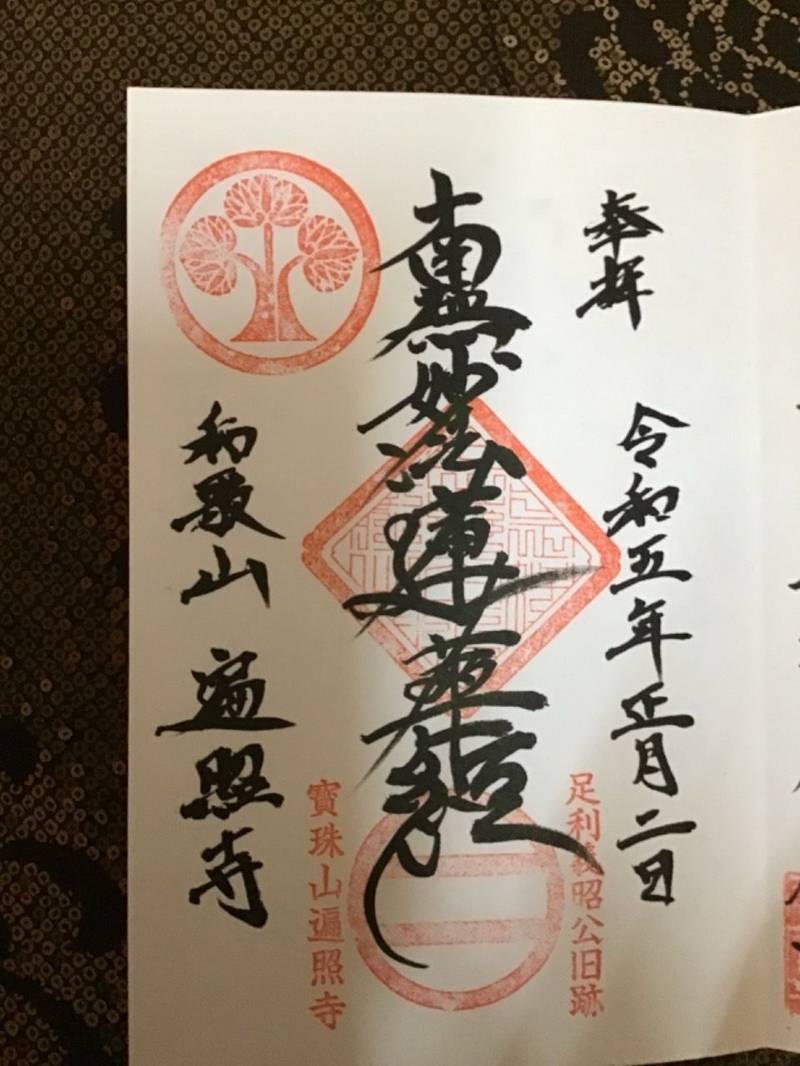 奉拝
令和五年正月二日
足利義昭公旧跡
南無妙法蓮華経
寶珠山遍照寺
和歌山 遍照寺